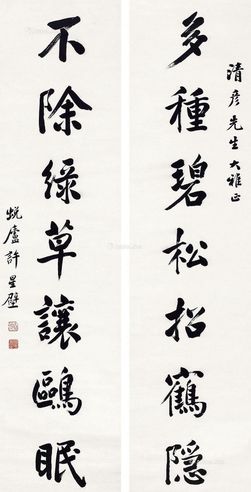 清彦先生大雅正
多種碧松招鶴隱
不除綠草讓鷗眠
悦廬許星璧